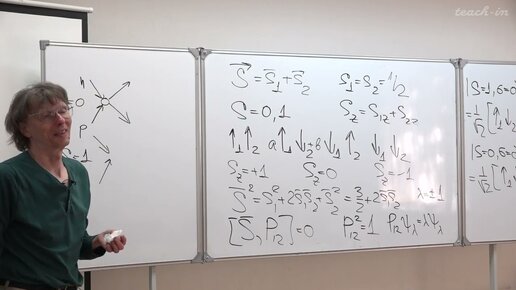 teach-in
n
=0
p
S=1
S⃗ = s̄₁ + s̄₂ s₁ = s₂ = 1/2
S = 0, 1 S_z = s_1z + s_2z
↑₁ ↑₂ a↑₁ ↓₂ + b↓₁ ↑₂ ↓₁ ↓₂
S_z = +1 S_z = 0 S_z = -1
S̄² = s̄₁² + 2s̄₁s̄₂ + s̄₂² = 3/2 + 2s̄₁s̄₂ λ = ±1
[S̄, P₁₂] = 0 P₁₂² = 1 P₁₂ψ_λ = λψ_λ
|S=1, S=0
= 1/√2 [↑
|S=0, S=0
= 1/√2 [↑